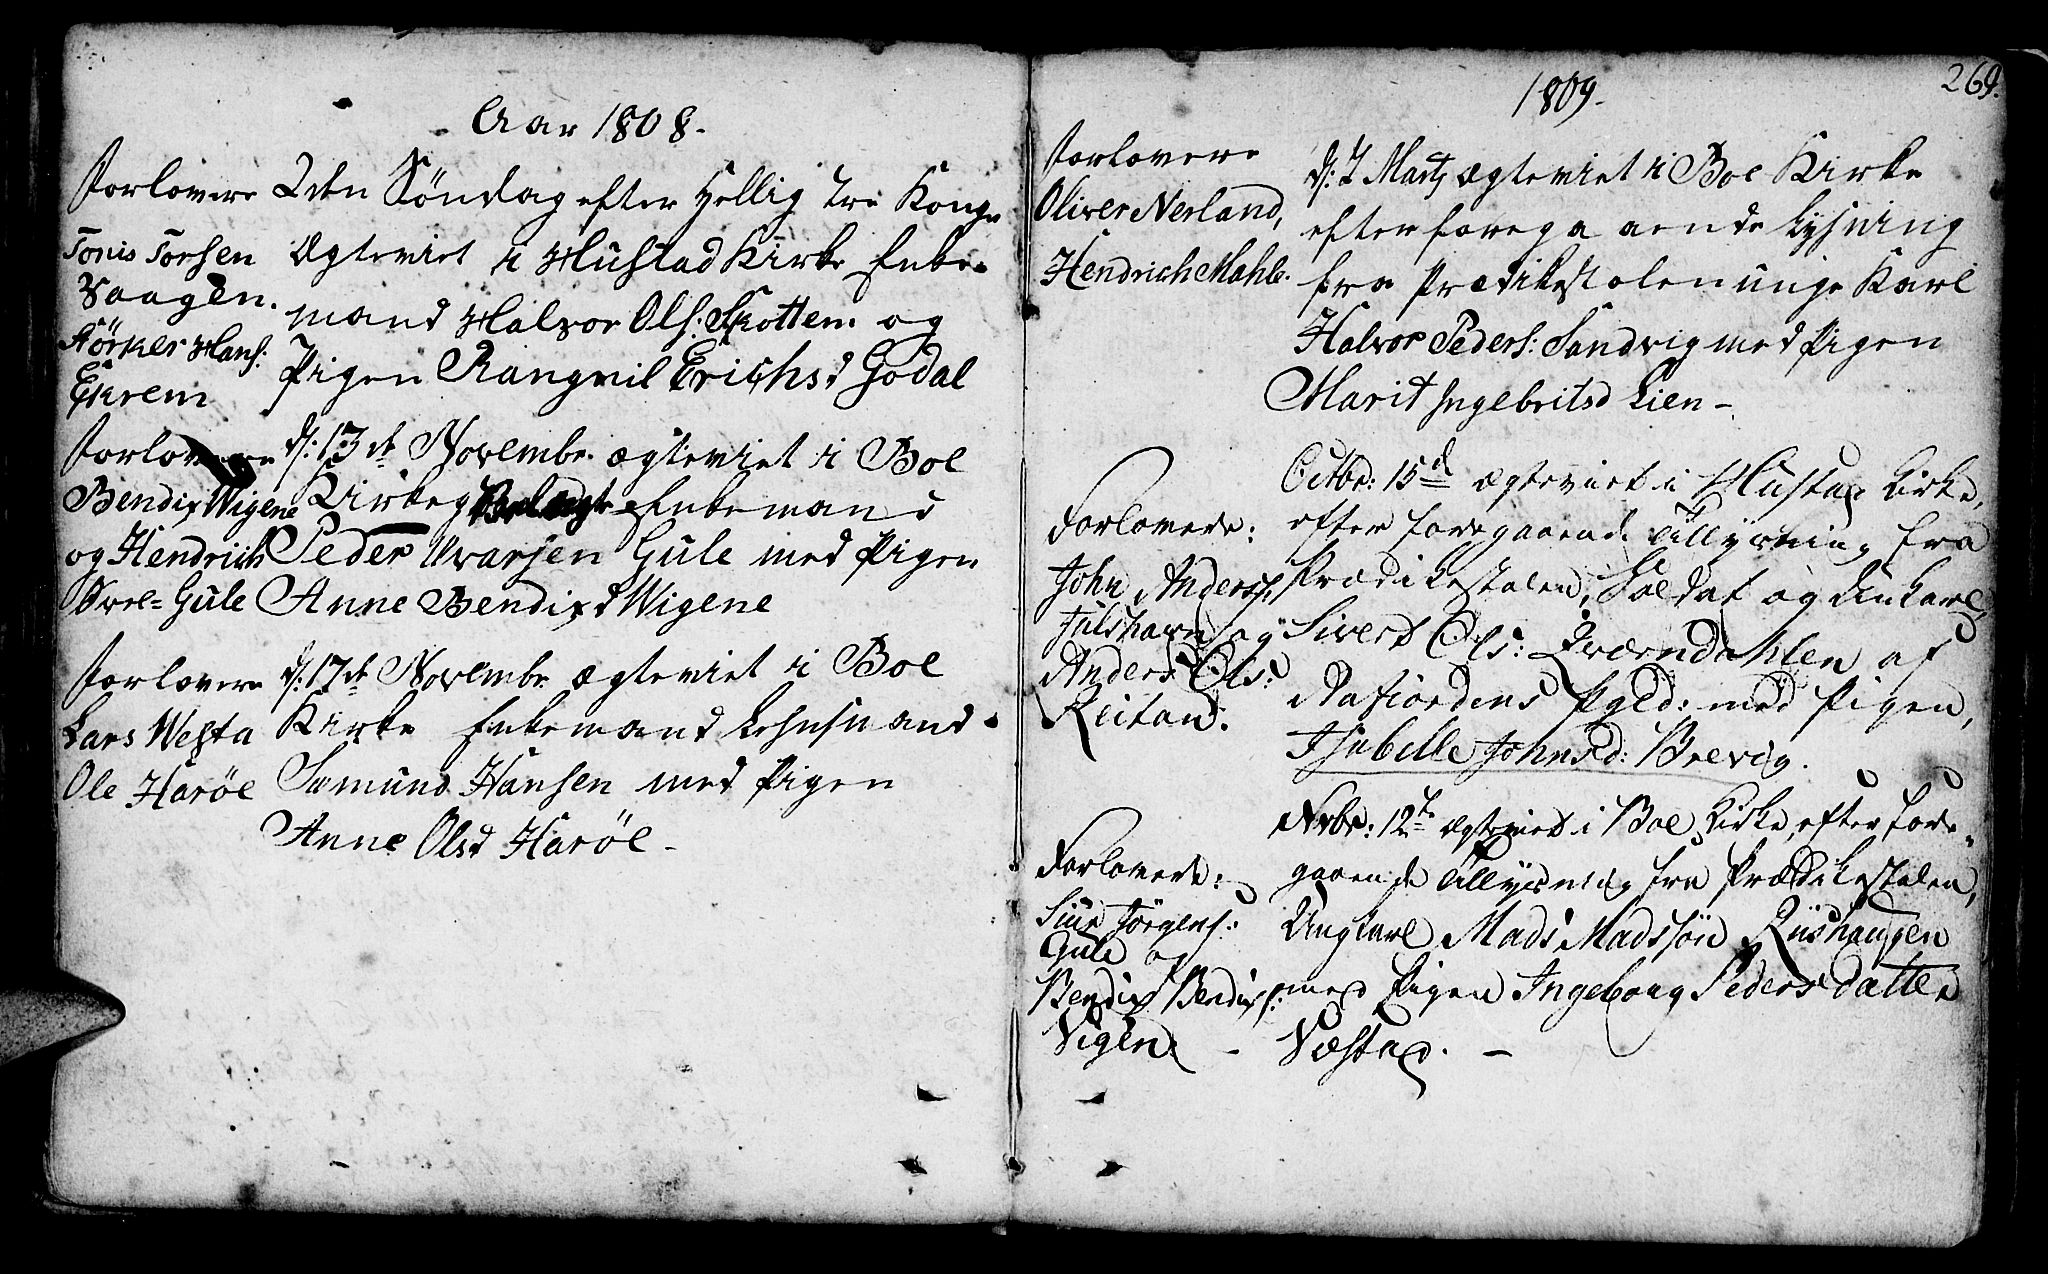 Aar 1808.
Forlovere
Tonis Torsen
Vaagen.
Störker Hans:
Ekrem
2den Søndag efter Hellig tre Konge
Ægteviet i Hustad Kirke Enke-
mand Halvor Ols: Skotten og
Pigen Rangvil Erichsd Godal
Forlovere
Bendix Wigene
og Hendrich
Gule
d: 13de Novembr. ægteviet i Boe
Kirke Enkemand
Peder Ivarsen Gule med Pigen
Anne Bendixd Wigene
Forlovere
Lars Westa
Ole Harøe
d: 17de Novembr ægteviet i Boe
Kirke Enkemand Lehnsmand
Samund Hansen med Pigen
Anne Olsd Harøe -
269.
1809.
Forlovere
Oliver Nerland,
Hendrich Mahle.
d: 7 Marti ægteviet i Boe Kirke
efter foregaaende Lysning
fra Prædikestolen unge Karl
Halvor Peders: Sandvig med Pigen
Marit Ingebritsd Lien -
Forlovere:
John Anderss:
Julshavn og
Anders Ols:
Reitan:
Octbr: 15d ægteviet i Hustad Kirke,
efter foregaaende Tillysning fra
Prædikestolen, Soldat og Enkarl,
Sivert Ols: Tværndahlen af
Nafiordens Pgld: med Pigen,
Isabelle Johnsd: Brevig.
Forlovere:
Siur Jörgens:
Gule og
Bendix Bendixs:
Vigen -
Nvbr: 12te ægteviet i Boe Kirke, efter fore-
gaaende Tillysning fra Prædikestolen,
Ungkarl Mads Madssøn Riishaugen
med Pigen Ingeborg Pedersdatter
Væstad. -